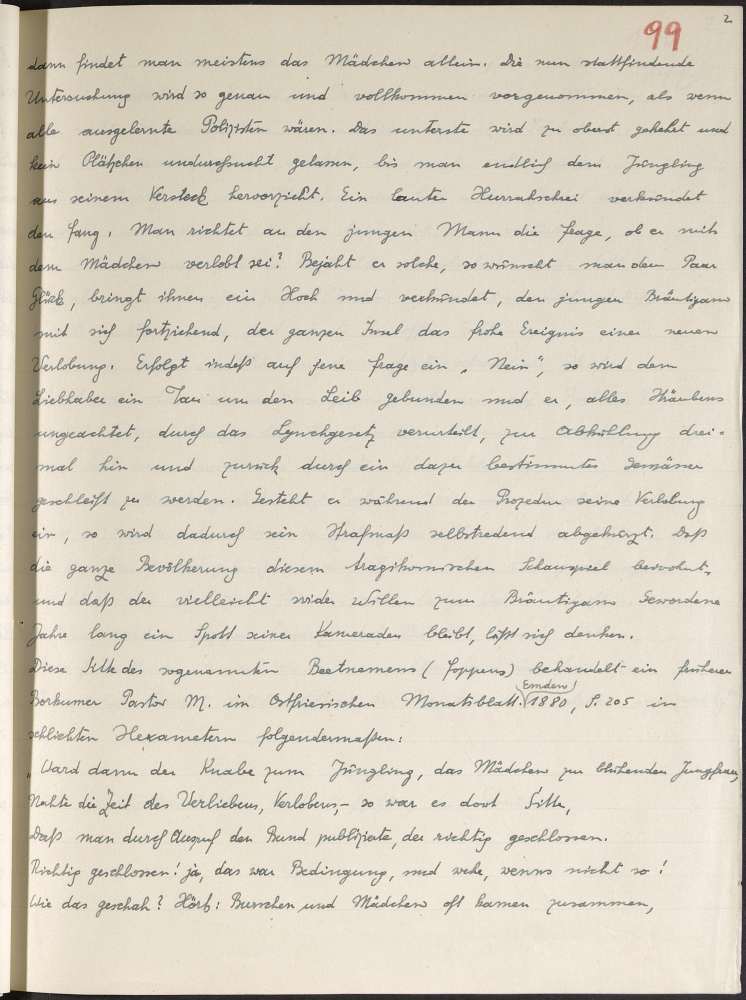 99
2
dann findet man meistens das Mädchen allein. Die nun stattfindende
Untersuchung wird so genau und vollkommen vorgenommen, als wenn
alle ausgelernte Polizisten wären. Das unterste wird zu oberst gekehrt und
kein Plätzchen undurchsucht gelassen, bis man endlich den Jüngling
aus seinem Versteck hervorzieht. Ein lauter Hurrahschrei verkündet
den Fang. Man richtet an den jungen Mann die Frage, ob er mit
dem Mädchen verlobt sei? Bejaht er solche, so wünscht man dem Paar
Glück, bringt ihnen ein Hoch und verkündet, den jungen Bräutigam
mit sich fortziehend, der ganzen Insel das frohe Ereignis einer neuen
Verlobung. Erfolgt indeß auf jene Frage ein „Nein“, so wird dem
Liebhaber ein Tau um den Leib gebunden und er, alles Sträubens
ungeachtet, durch das Lynchgesetz verurteilt, zur Abkühlung drei-
mal hin und zurück durch ein dazu bestimmtes Gewässer
geschleift zu werden. Gesteht er während der Prozedur seine Verlobung
ein, so wird dadurch sein Strafmaß selbstredend abgekürzt. Daß
die ganze Bevölkerung diesem tragikomischen Schauspiel beiwohnt,
und daß der vielleicht wider Willen zum Bräutigam Gewordene
Jahre lang ein Spott seiner Kameraden bleibt, läßt sich denken.
Diese Sitte des sogenannten Beetnemens (Foppens) behandelt ein früherer
Borkumer Pastor M. im Ostfriesischen Monatsblatt (Emden) 1880, S. 205 in
schlichten Hexametern folgendermaßen:
„Ward dann der Knabe zum Jüngling, das Mädchen zur blühenden Jungfrau,
Nahte die Zeit des Verliebens, Verlobens, – so war es dort Sitte,
Daß man durch Ausruf den Bund publizirte, der richtig geschlossen.
Richtig geschlossen! ja, das war Bedingung, und wehe, wenns nicht so!
Wie das geschah? Hört: Burschen und Mädchen oft kamen zusammen,